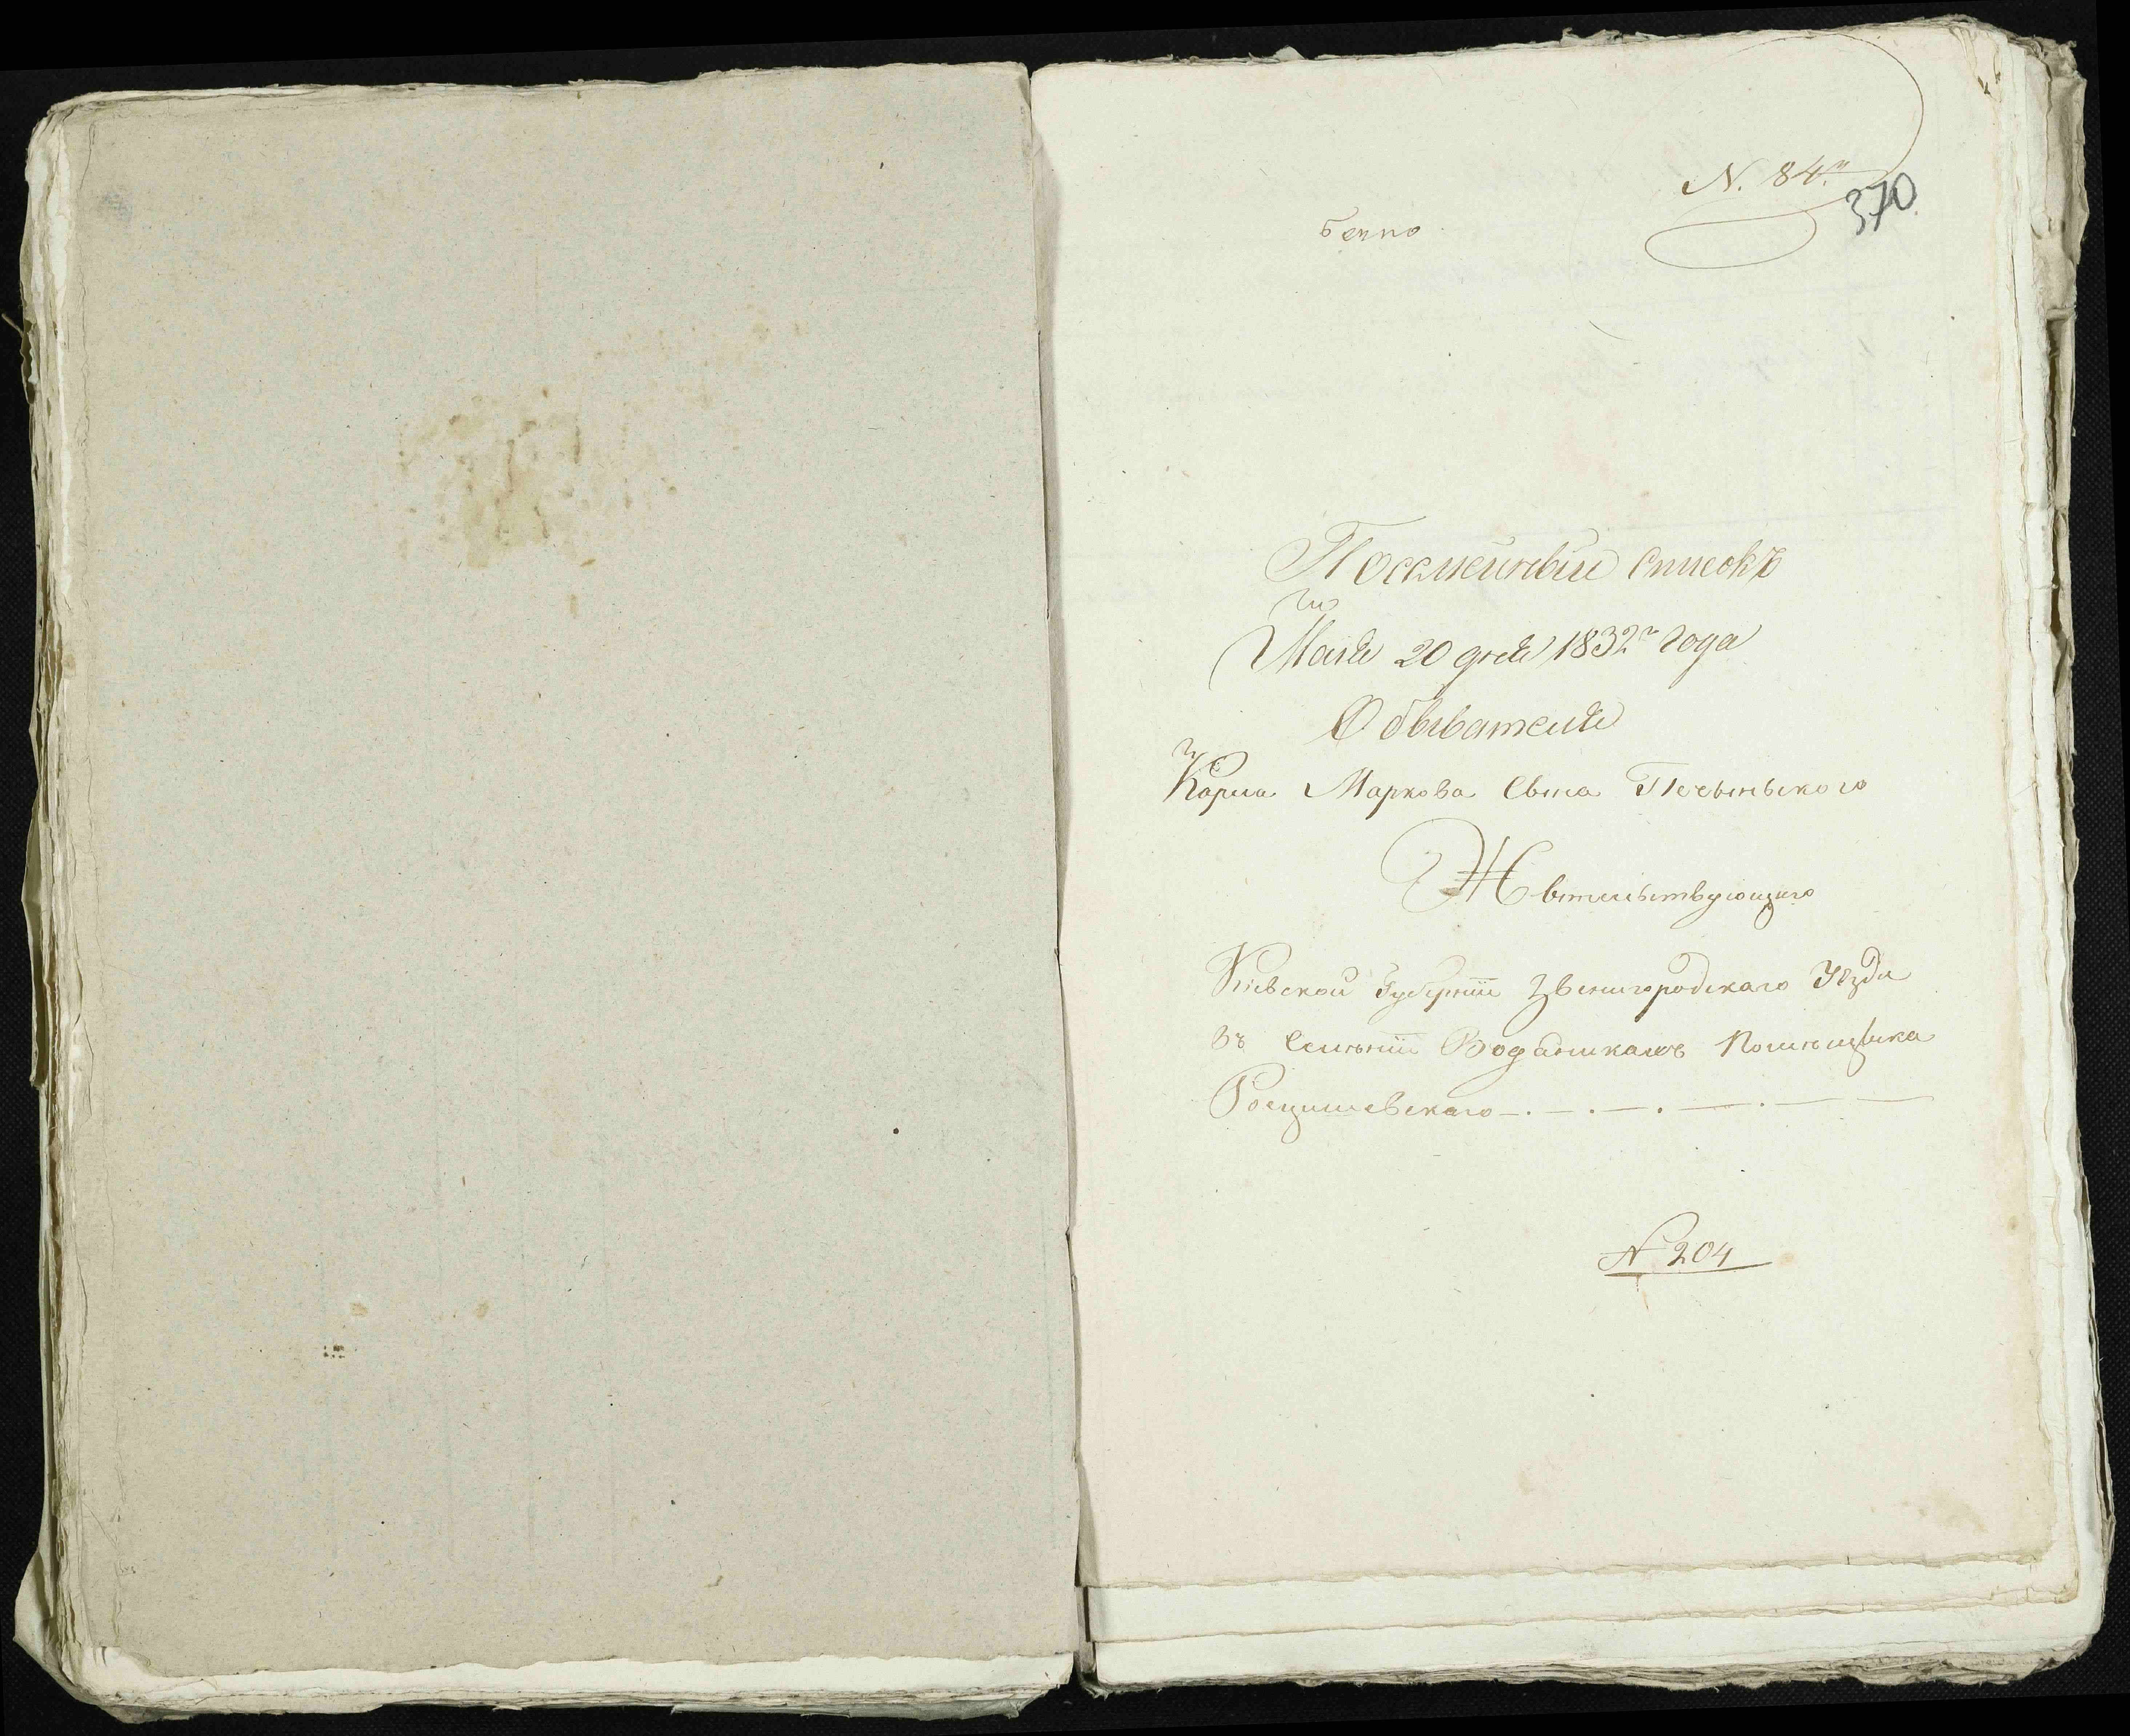 N. 84й
370
бекно
Посемейный списокъ
Маія 20 дня 1832г года
Обывателя
Карла Маркова Сына Печыньского
Жытельствующаго
Кіевской Губерніи Звенигородскаго Уезда
въ Селеніи Водяникахъ Помещика
Росцишевскаго
N 204